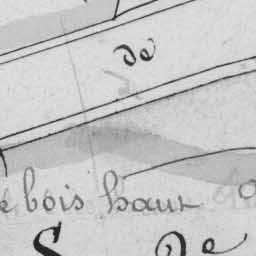 de
bois haut
De